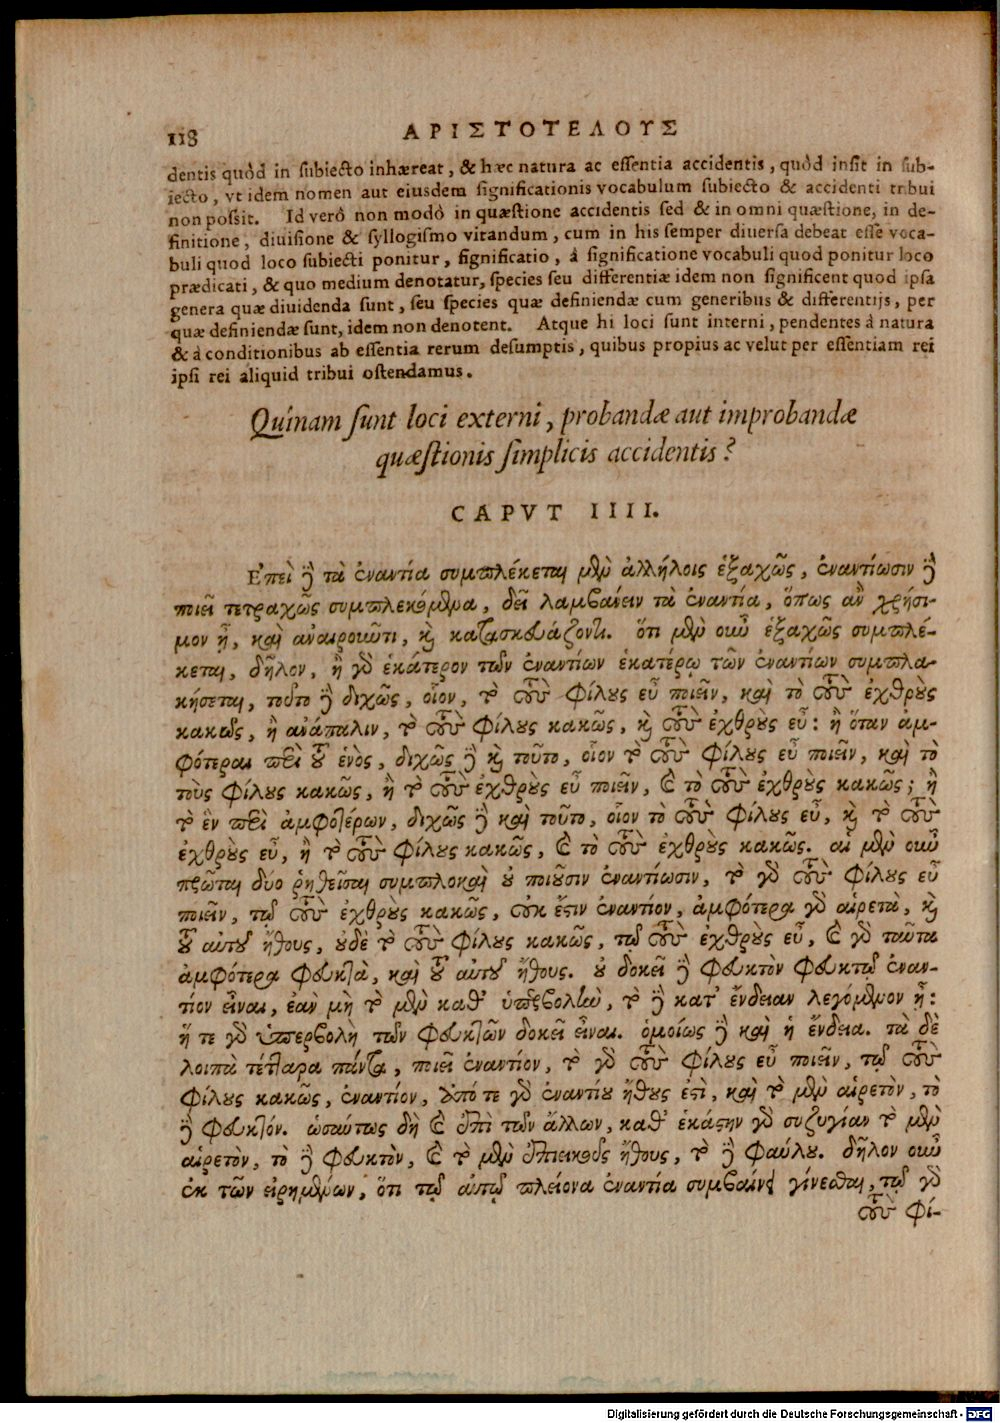 118 ΑΡΙΣΤΟΤΕΛΟΥΣ
dentis quòd in subiecto inhæreat, & hæc natura ac essentia accidentis, quòd insit in sub-
iecto, vt idem nomen aut eiusdem significationis vocabulum subiecto & accidenti tribui
non possit. Id verò non modò in quæstione accidentis sed & in omni quæstione, in de-
finitione, diuisione & syllogismo vitandum, cum in his semper diuersa debeat esse voca-
buli quod loco subiecti ponitur, significatio, à significatione vocabuli quod ponitur loco
prædicati, & quo medium denotatur, species seu differentiæ idem non significent quod ipsa
genera quæ diuidenda sunt, seu species quæ definiendæ cum generibus & differentijs, per
quæ definiendæ sunt, idem non denotent. Atque hi loci sunt interni, pendentes à natura
& à conditionibus ab essentia rerum desumptis, quibus propius ac velut per essentiam rei
ipsi rei aliquid tribui ostendamus.
Quínam sunt loci externi, probandæ aut improbandæ
quæstionis simplicis accidentis?
CAPVT IIII.
Ἐπεὶ δὲ τὰ ἐναντία συμπλέκεται μὲν ἀλλήλοις ἑξαχῶς, ἐναντίωσιν δὲ
ποιεῖ τετραχῶς συμπλεκόμενα, δεῖ λαμβάνειν τὰ ἐναντία, ὅπως ἂν χρήσι-
μον ᾖ, καὶ ἀναιροῦντι, καὶ κατασκευάζοντι. ὅτι μὲν οὖν ἑξαχῶς συμπλέ-
κεται, δῆλον, ἢ γὸ ἑκάτερον τῶν ἐναντίων ἑκατέρῳ τῶν ἐναντίων συμπλα-
κήσεται, τοῦτο δὲ διχῶς, οἷον, τὸ τοὺς φίλους εὖ ποιεῖν, καὶ τὸ τοὺς ἐχθροὺς
κακῶς, ἢ ἀνάπαλιν, τὸ τοὺς φίλους κακῶς, καὶ τοὺς ἐχθροὺς εὖ: ἢ ὅταν ἀμ-
φότεραι περὶ τοῦ ἑνὸς, διχῶς δὲ καὶ τοῦτο, οἷον τὸ τοὺς φίλους εὖ ποιεῖν, καὶ τὸ
τοὺς φίλους κακῶς, ἢ τὸ τοὺς ἐχθροὺς εὖ ποιεῖν, καὶ τὸ τοὺς ἐχθροὺς κακῶς; ἢ
τὸ ἓν περὶ ἀμφοτέρων, διχῶς δὲ καὶ τοῦτο, οἷον τὸ τοὺς φίλους εὖ, καὶ τὸ τοὺς
ἐχθροὺς εὖ, ἢ τὸ τοὺς φίλους κακῶς, καὶ τὸ τοὺς ἐχθροὺς κακῶς. αἱ μὲν οὖν
πρῶται δύο ῥηθεῖσαι συμπλοκαὶ οὐ ποιοῦσιν ἐναντίωσιν, τὸ γὰρ τοὺς φίλους εὖ
ποιεῖν, τῷ τοὺς ἐχθροὺς κακῶς, οὐκ ἔστιν ἐναντίον, ἀμφότερα γὰρ αἱρετὰ, καὶ
τοῦ αὐτοῦ ἤθους, οὐδὲ τὸ τοὺς φίλους κακῶς, τῷ τοὺς ἐχθροὺς εὖ, καὶ γὰρ ταῦτα
ἀμφότερα φευκτὰ, καὶ τοῦ αὐτοῦ ἤθους. οὐ δοκεῖ δὲ φευκτὸν φευκτῷ ἐναν-
τίον εἶναι, ἐὰν μὴ τὸ μὲν καθ' ὑπερβολὴν, τὸ δὲ κατ' ἔνδειαν λεγόμενον ᾖ:
ἥ τε γὰρ ὑπερβολὴ τῶν φευκτῶν δοκεῖ εἶναι. ὁμοίως δὲ καὶ ἡ ἔνδεια. τὰ δὲ
λοιπὰ τέτταρα πάντα, ποιεῖ ἐναντίον, τὸ γὰρ τοὺς φίλους εὖ ποιεῖν, τῷ τοὺς
φίλους κακῶς, ἐναντίον, ἀπό τε γὰρ ἐναντίου ἤθους ἐστὶ, καὶ τὸ μὲν αἱρετὸν, τὸ
δὲ φευκτόν. ὡσαύτως δὴ καὶ ἐπὶ τῶν ἄλλων, καθ' ἑκάστην γὰρ συζυγίαν τὸ μὲν
αἱρετὸν, τὸ δὲ φευκτὸν, καὶ τὸ μὲν ἐπιεικοῦς ἤθους, τὸ δὲ φαύλου. δῆλον οὖν
ἐκ τῶν εἰρημένων, ὅτι τῷ αὐτῷ πλείονα ἐναντία συμβαίνει γίνεσθαι, τῷ γὰρ
τοὺς φί-
Digitalisierung gefördert durch die Deutsche Forschungsgemeinschaft - DFG